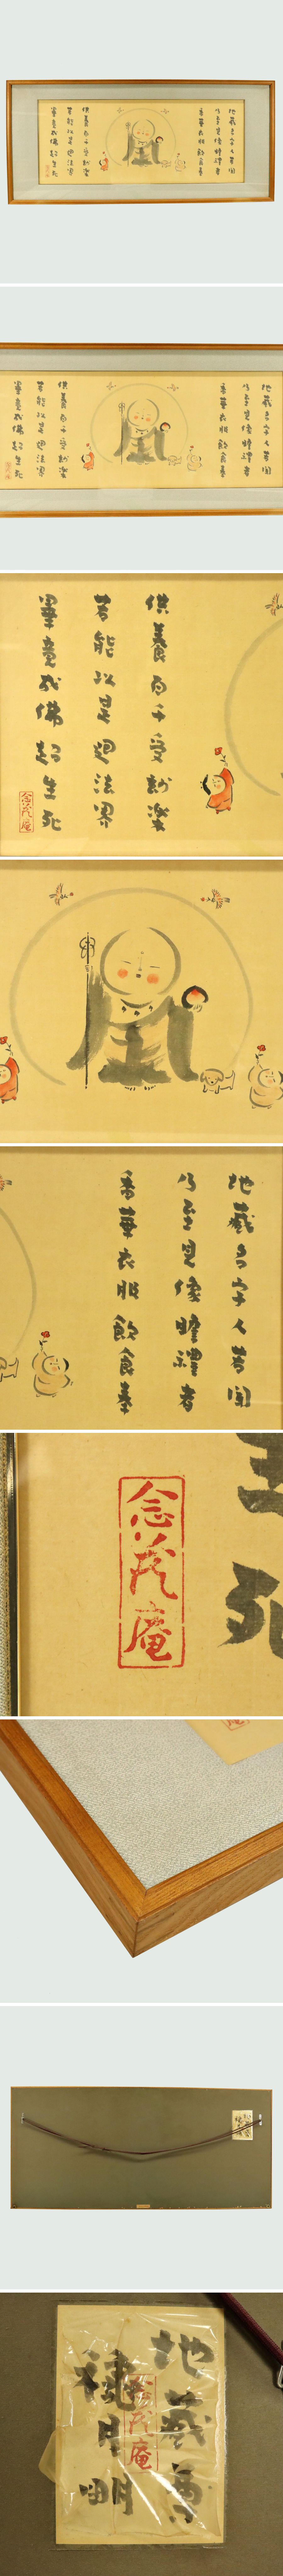 地蔵名字人若聞
乃至見像瞻禮者
香華衣服飲食奉
供養百千受妙樂
若能以是迴法界
畢竟成佛超生死
地蔵尊
穐月明